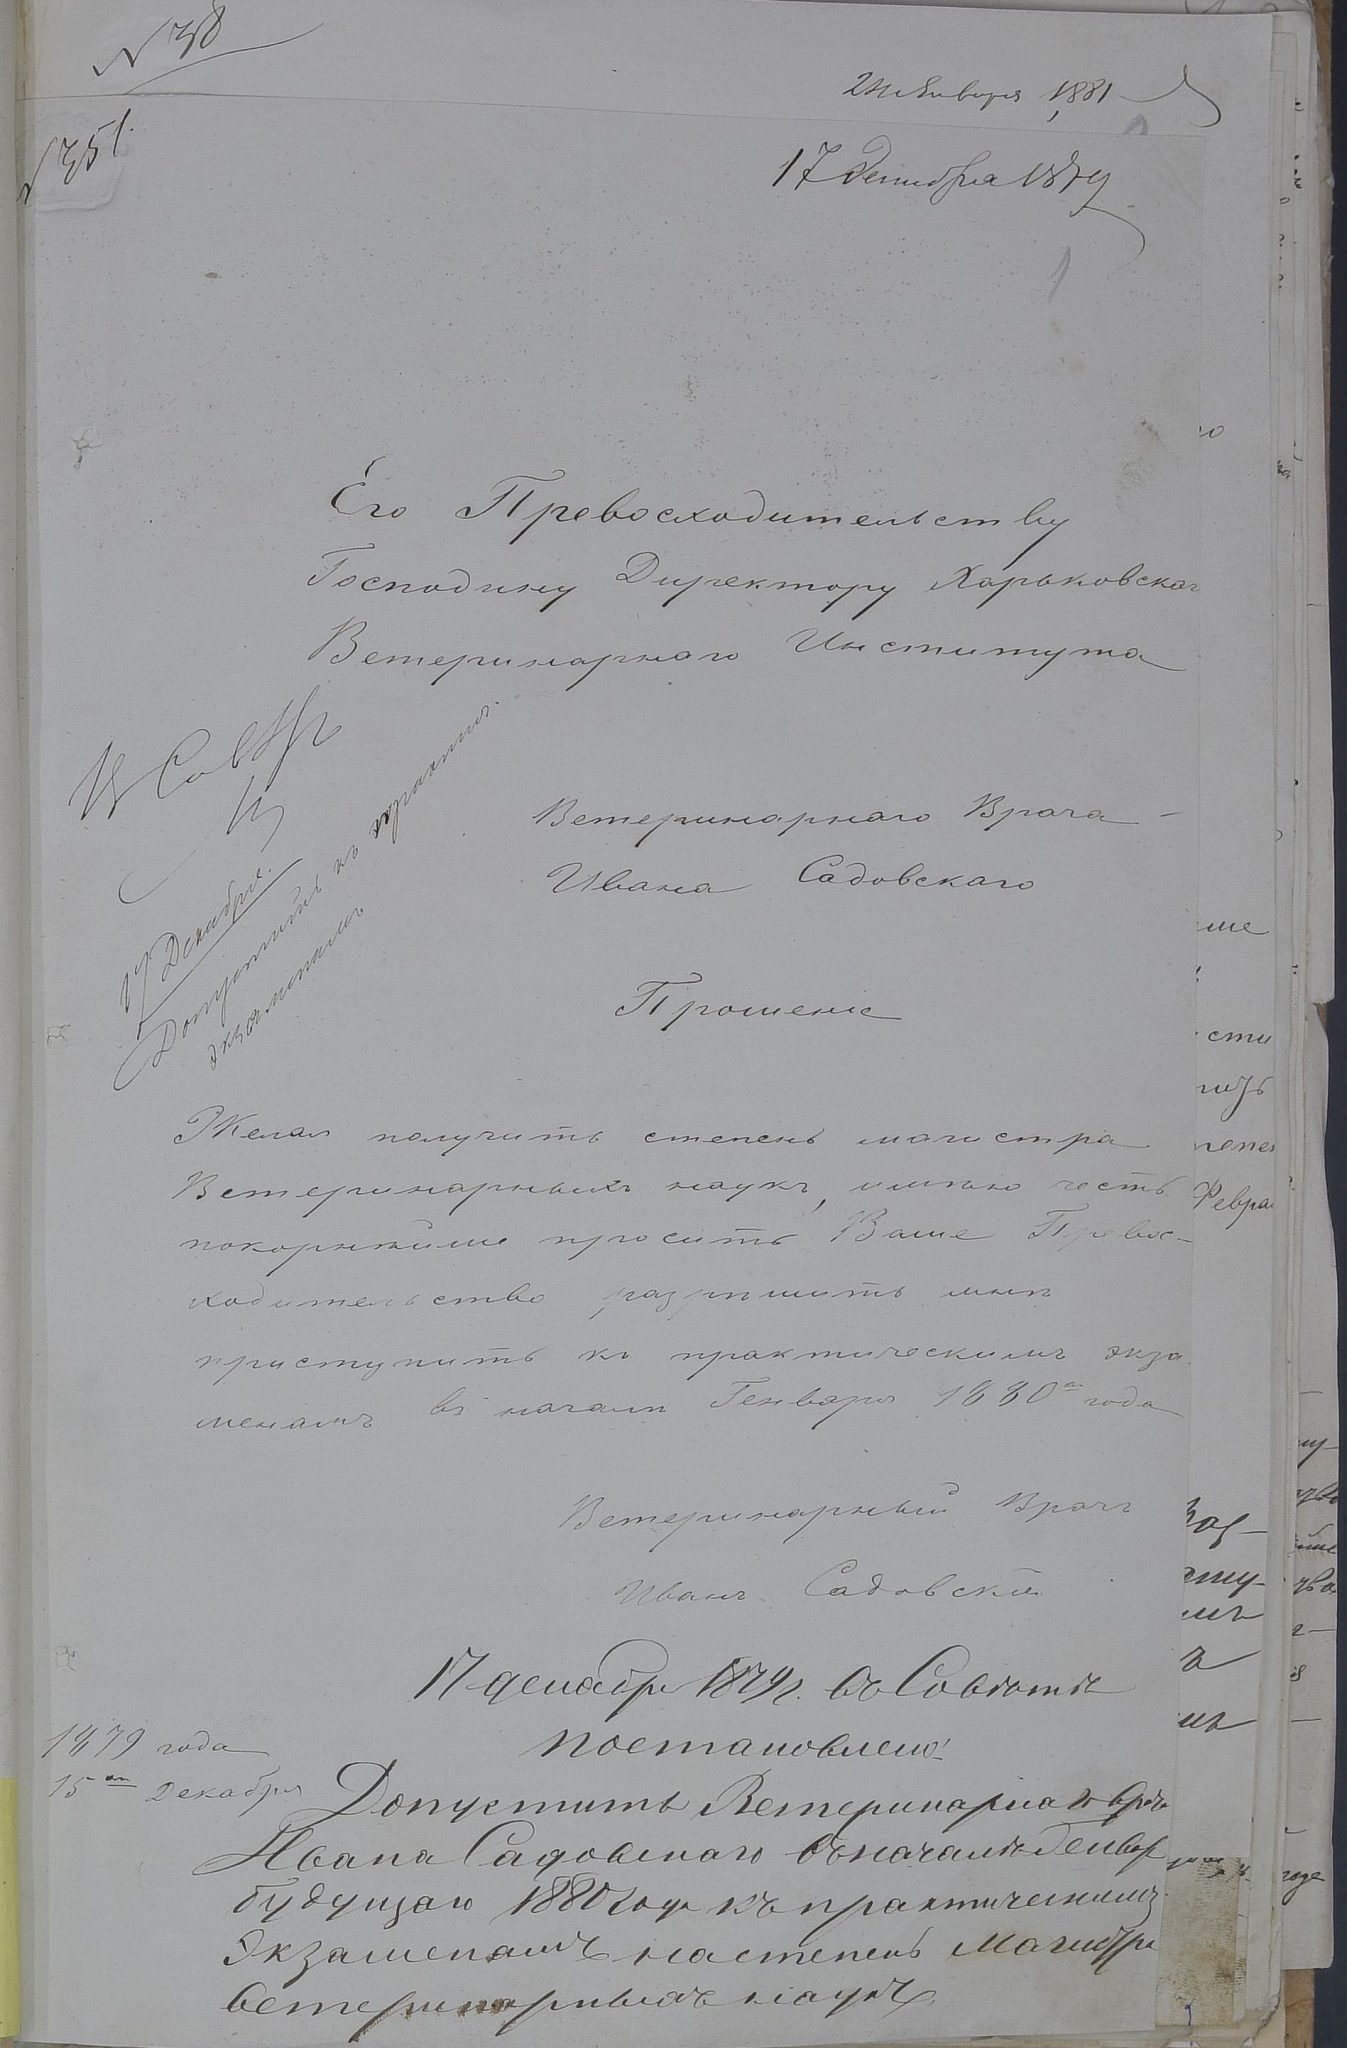 № 38
2 Января 1881
№ 351.
17 Декабря 1879
1
Его Превосходительству
Господину Директору Харьковскаг
Ветеринарнаго Института
Въ Совѣтъ
17 Декабря.
Допустить къ практич.
экзаменамъ
Ветеринарнаго Врача
Ивана Садовскаго
Прошеніе
Желая получить степень магистра
Ветеринарныхъ наукъ, имѣю честь
покорнѣйше просить Ваше Превос-
ходительство разрѣшить мнѣ
приступить къ практическимъ экза
менамъ въ началѣ Генваря 1880го года
Ветеринарный Врачъ
Иванъ Садовскій
17 декабря 1879 г. въ Совѣтѣ
постановлено:
1879 года
15го Декабря
Допустить Ветеринарнаго врача
Ивана Садовскаго въ началѣ Генвар
будущаго 1880 года къ практическимъ
экзаменамъ на степень Магистра
ветеринарныхъ наукъ.
ше
сти
Февра